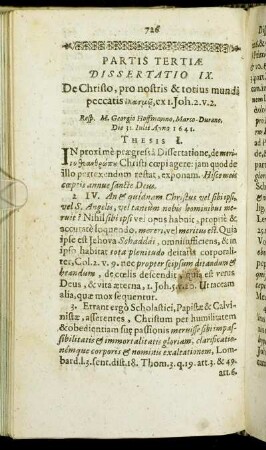 726
PARTIS TERTIÆ
DISSERTATIO IX.
De Christo, pro nostris & totius mundi
peccatis ἱλασμῷ, ex 1. Joh. 2. v. 2.
Resp. M. Georgio Hoffmanno, Marco-Durano.
Die 31. Julii Anno 1641.
THESIS I.
IN proximè prægressâ Dissertatione, de meri-
Christi cœpi agere: jam quod de
illo pertexendum restat, exponam. Hisce nunc
cœptis annue sancte Deus.
2 IV. An & quidnam Christus vel sibi ipsi,
vel S. Angelis, vel tantùm nobis hominibus me-
ruit? Nihil sibi ipsi vel opus habuit, propriè &
accuratè loquendo, moreri, vel meritus est. Quia
ipse est Jehova Schaddai, omnisufficiens, & in
ipso habitat tota plenitudo deitatis corporali-
ter, Col. 2. v. 9. nec propter seipsum ditandum &
brandum, de cœlis descendit, quia est verus
Deus, & vita æterna, 1. Joh. 5. v. 20. Ut taceam
alia, quæ mox sequentur.
3. Errant ergò Scholastici, Papistæ & Calvi-
nistæ, asserentes, Christum per humilitatem
& obedientiam suę passionis meruisse sibi impas-
sibilitatis & immortalitatis gloriam, clarificatio-
némque corporis & nominis exaltationem, Lom-
bard. l. 3. sent. dist. 18. Thom. 3. q. 19. art. 3. & 49.
art. 6.